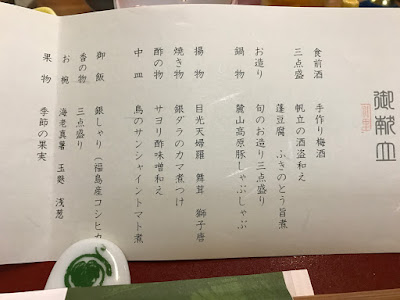 御献立
食前酒 手作り梅酒
三点盛り 帆立の酒盗和え
蓬豆腐 ふきのとう旨煮
お造り 旬のお造り三点盛り
鍋物 麓山高原豚しゃぶしゃぶ
揚物 目光天婦羅 舞茸 獅子唐
焼き物 銀ダラのカマ煮つけ
酢の物 サヨリ酢味噌和え
中皿 鳥のサンシャイントマト煮
御飯 銀しゃり(福島産コシヒカ
香の物 三点盛り
お椀 海老真薯 玉麩 浅葱
果物 季節の果実